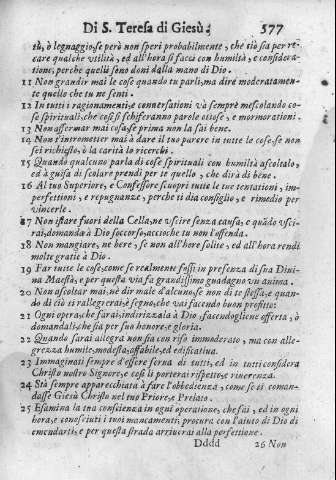 Di S. Teresa di Giesù. 577
tù, ò legnaggio, se però non speri probabilmente, che ciò sia per re-
care qualche utilità, ed all'hora si facci con humiltà, e conside ra-
tione, perche quelli sono doni dalla mano di Dio.
11 Non grandir mai le cose quando tu parli, ma dire moderatamen-
te quello che tu ne senti.
12 In tutti i ragionamenti, e conversationi và sempre mescolando co-
se spirituali, che così si schiferanno parole otiose, e mormorationi.
13 Non affermar mai cosa, se prima non la sai bene.
14 Non t'intrometter mai à dare il tuo parere in tutte le cose, se non
sei richiesto, ò la carità lo ricerchi.
15 Quando qualcuno parla di cose spirituali con humiltà ascoltalo,
ed à guisa di scolare prendi per te quello, che dirà di bene.
16 Al tuo Superiore, e Confessore scuopri tutte le tue tentationi, im-
perfettioni, e repugnanze, perche ti dia consiglio, e rimedio per
vincerle.
17 Non istare fuori della Cella, ne uscire senza causa, e quādo usci-
rai, domanda à Dio soccorso, acciòche tu non l'offenda.
18 Non mangiare, nè bere, se non all'hore solite, ed all'hora rendi
molte gratie à Dio.
19 Far tutte le cose, come se realmente fossi in presenza di sua Divi-
na Maestà, e per questa via fa grandissimo guadagno un' anima.
20 Non ascoltar mai, nè dir male d'alcuno, se non di te stessa, e quan-
do di ciò ti rallegrerai, è segno, che vai facendo buon profitto.
21 Ogni opera, che farai, indirizzala à Dio, facendogliene offerta, ò
domandali, che sia per suo honore, e gloria.
22 Quando sarai allegra non sia con riso immoderato, ma con alle-
grezza humile, modesta, affabile, ed edificativa.
23 Immaginati sempre d'essere serva di tutti, ed in tutti considera
Christo nostro Signore, e così li porterai rispetto, e riverenza.
24 Stà sempre apparecchiata à fare l'obbedienza, come se ti coman-
dasse Giesù Christo nel tuo Priore, e Prelato.
25 Esamina la tua conscienza in ogni operatione, che fai, ed in ogni
hora, e conosciuti i tuoi mancamenti, procura con l'aiuto di Dio di
emendarti, e per questa strada arriverai alla perfettione.
Dddd 26 Non